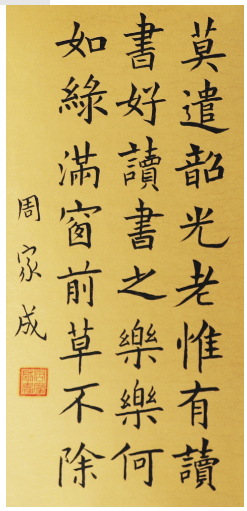 莫遣韶光老惟有讀
書好讀書之樂樂何
如綠滿窗前草不除
周家成